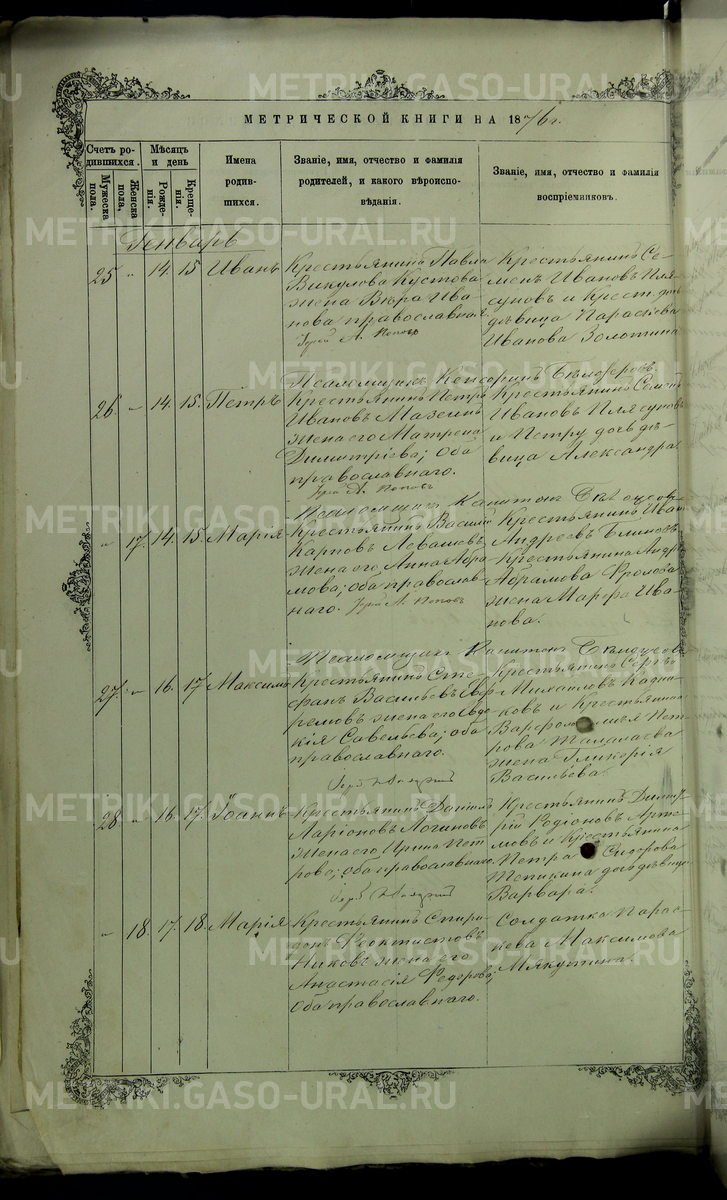 METRIKI.GASO-URAL.RU
МЕТРИЧЕСКОЙ КНИГИ НА 1876 г.
Счетъ ро-
дившихся.
Мужеска
пола.
Женска
пола.
Мѣсяцъ
и день
Рожде-
нія.
Креще-
нія.
Имена
родив-
шихся.
Званіе, имя, отчество и фамилія
родителей, и какого вѣроиспо-
вѣданія.
Званіе, имя, отчество и фамилія
воспріемниковъ.
Генварь
25 " 14. 15 Иванъ
Крестьянина Павла
Викулова Кустова
жена Вѣра Ива-
нова православная
Іерей А. Поповъ
Крестьянинъ Се-
менъ Ивановъ Пля-
суновъ и Крест. дочь
дѣвица Параскева
Иванова Золотина
Псаломщикъ
26. " 14. 15. Петръ
Крестьянинъ Петръ
Ивановъ Мазеинъ
жена его Матрена
Димитріева; оба
православнаго.
Іерей А. Поповъ
Крестьянинъ Семенъ
Ивановъ Плясуновъ
и Петру дочь дѣ-
вица Александра.
Псаломщикъ Капитонъ
" 17. 14. 15. Марія
Крестьянинъ Василій
Карповъ Левашовъ,
жена его Анна Абра-
мова; оба православ-
наго. Іерей А. Поповъ
Крестьянинъ Иванъ
Андреевъ Блиновъ
Крестьянина Андрея
Абрамова Фролова
жена Марфа Ива-
нова.
Псаломщикъ Капитонъ
27. " 16. 17 Максимъ
Крестьянинъ Сте-
фанъ Васильевъ
жена его Евдо-
кія Савельева; оба
православнаго.
Крестьянинъ Сергѣй
Михаиловъ
и Крестьянина
Варфоломея Пет-
рова Талалаева
жена Гликерія
Васильева.
28 " 16. 17. Іоаннъ
Крестьянинъ Даніилъ
Ларіоновъ Логиновъ
жена его Ирина Пет-
рова; оба православнаго
Крестьянинъ Димит-
рій Родіоновъ Арте-
мовъ и Крестьянина
Петра Сидорова
дочь дѣвица
Варвара.
" 18. 17. 18. Марія
Крестьянинъ Спири-
донъ Феоктистовъ
жена его
Анастасія Федорова;
оба православнаго.
Солдатка Парас-
кева Максимова
Мякутина.